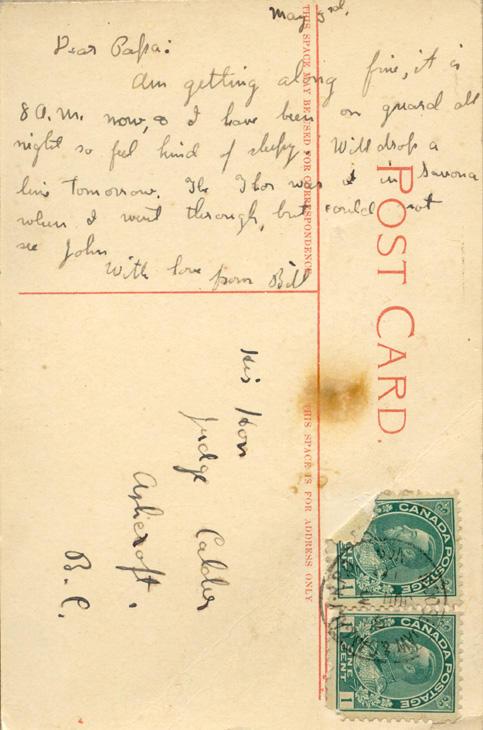 May 3rd.
Dear Papa:
Am getting along fine, it is
8 A.M. now, & I have been on guard all
night so feel kind of sleepy. Will drop a
line tomorrow. The Thor was in Savona
when I went through, but could not
see John
With love from Bill
THIS SPACE MAY BE USED FOR CORRESPONDENCE
POST CARD.
THIS SPACE IS FOR ADDRESS ONLY
His Hon
Judge Calder
Ashcroft.
B.C.
CANADA POSTAGE
1
CANADA POSTAGE
1 CENTS 1